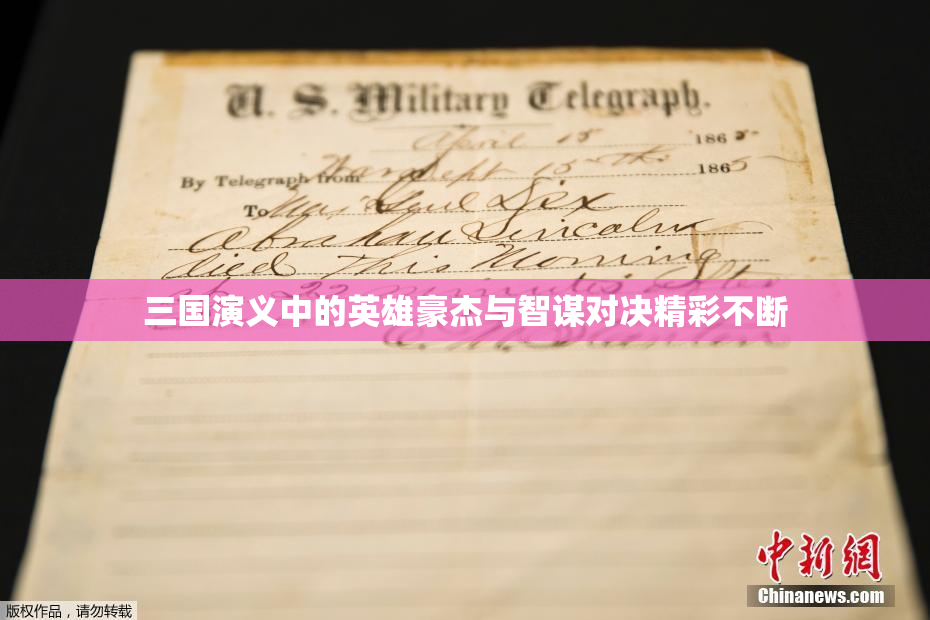 U. S. Military Telegraph.
April 15 1865
By Telegraph from War Dept 15th 1865
To Maj Genl Dix
Abraham Lincoln
died This Morning
at 22 minutes after
三国演义中的英雄豪杰与智谋对决精彩不断
E. M. Stanton
中新网
Chinanews.com
版权作品,请勿转载